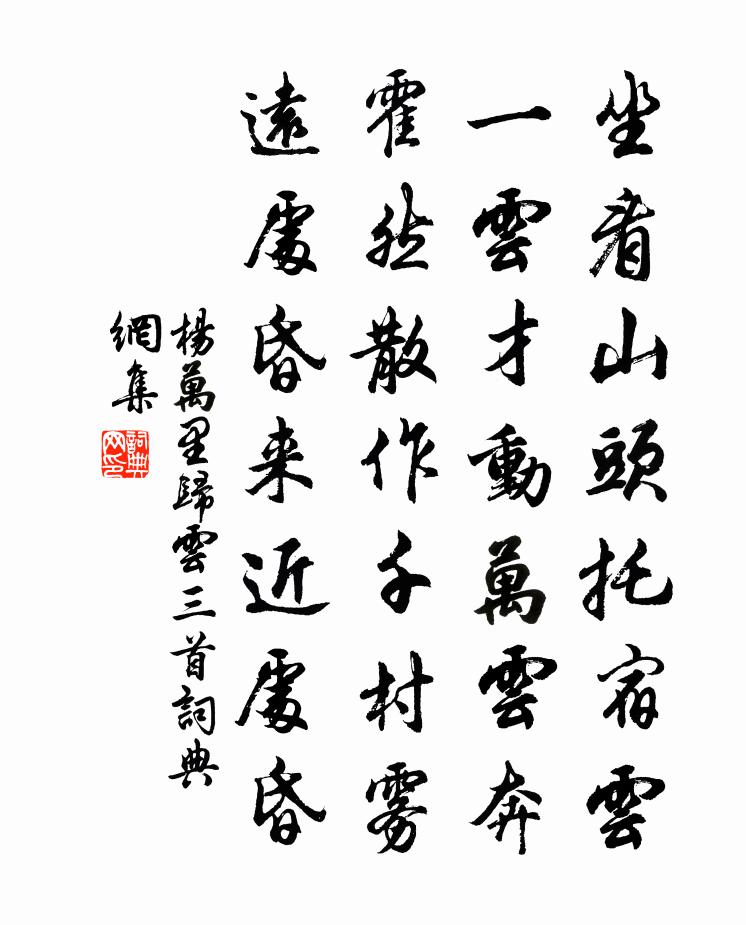 坐看山頭托宿雲
一雲才動萬雲奔
霍然散作千村雾
遠處昏来近處昏
楊萬里歸雲三首詞典
網集
詞典
网印